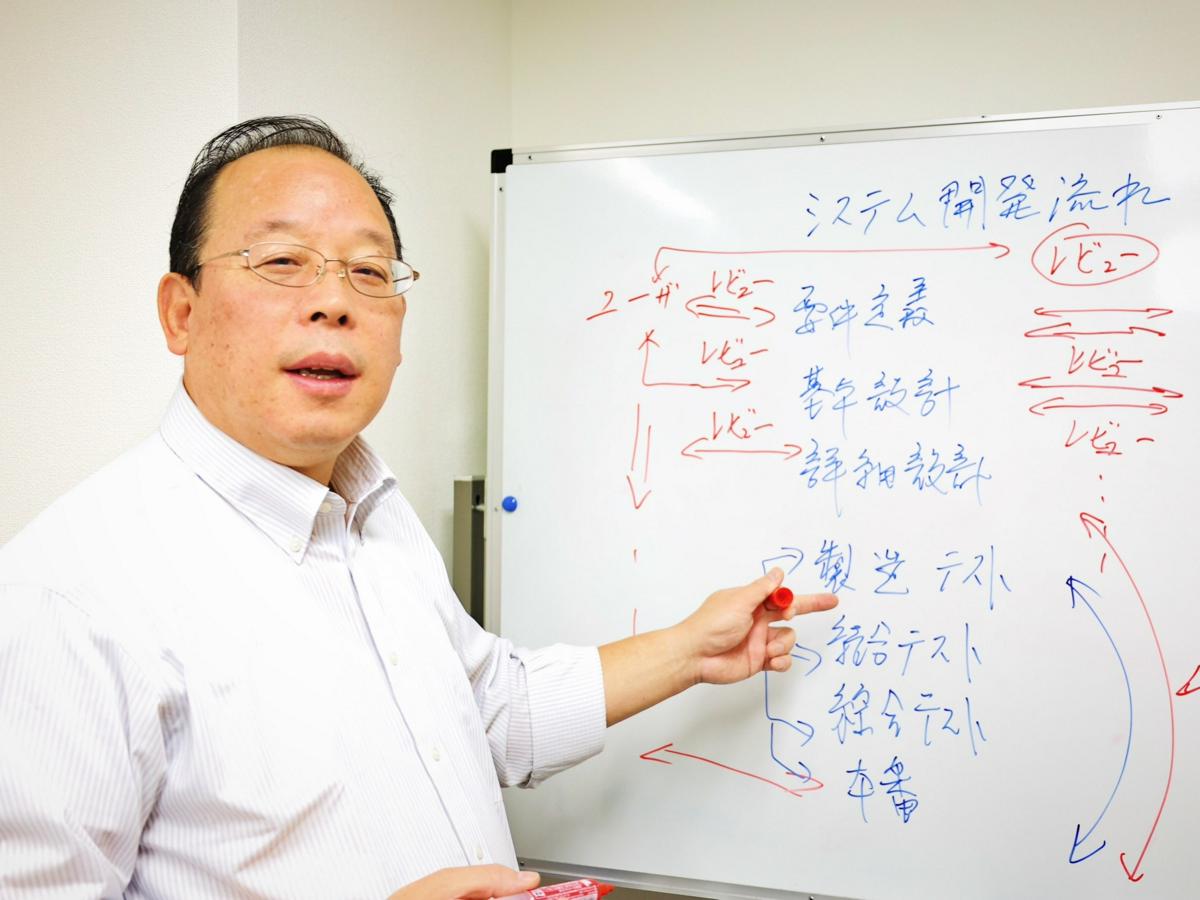 システム開発流れ
レビュー
ユーザ レビュー 要件定義
レビュー レビュー
基本設計
レビュー レビュー
詳細設計
製造 テスト
結合テスト
綜合テスト
本番